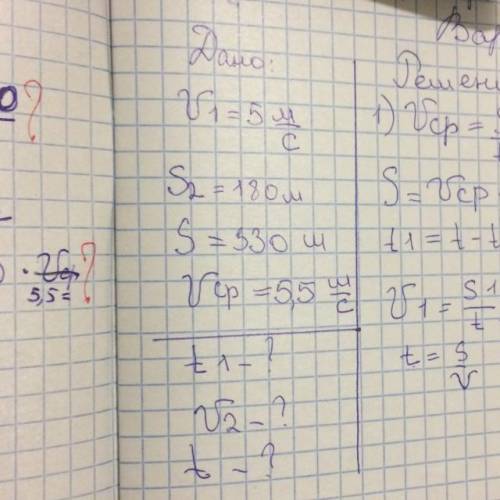 Вар
Дано:
V1 = 5 м/с
S2 = 180 м
S = 330 м
Vср = 5,5 м/с
t1 - ?
V2 - ?
t - ?
Решени
1) Vср =
S = Vср
t1 = t - t
V1 = S1/t
t = S/V
0?
) · Vср ?
5,5 =